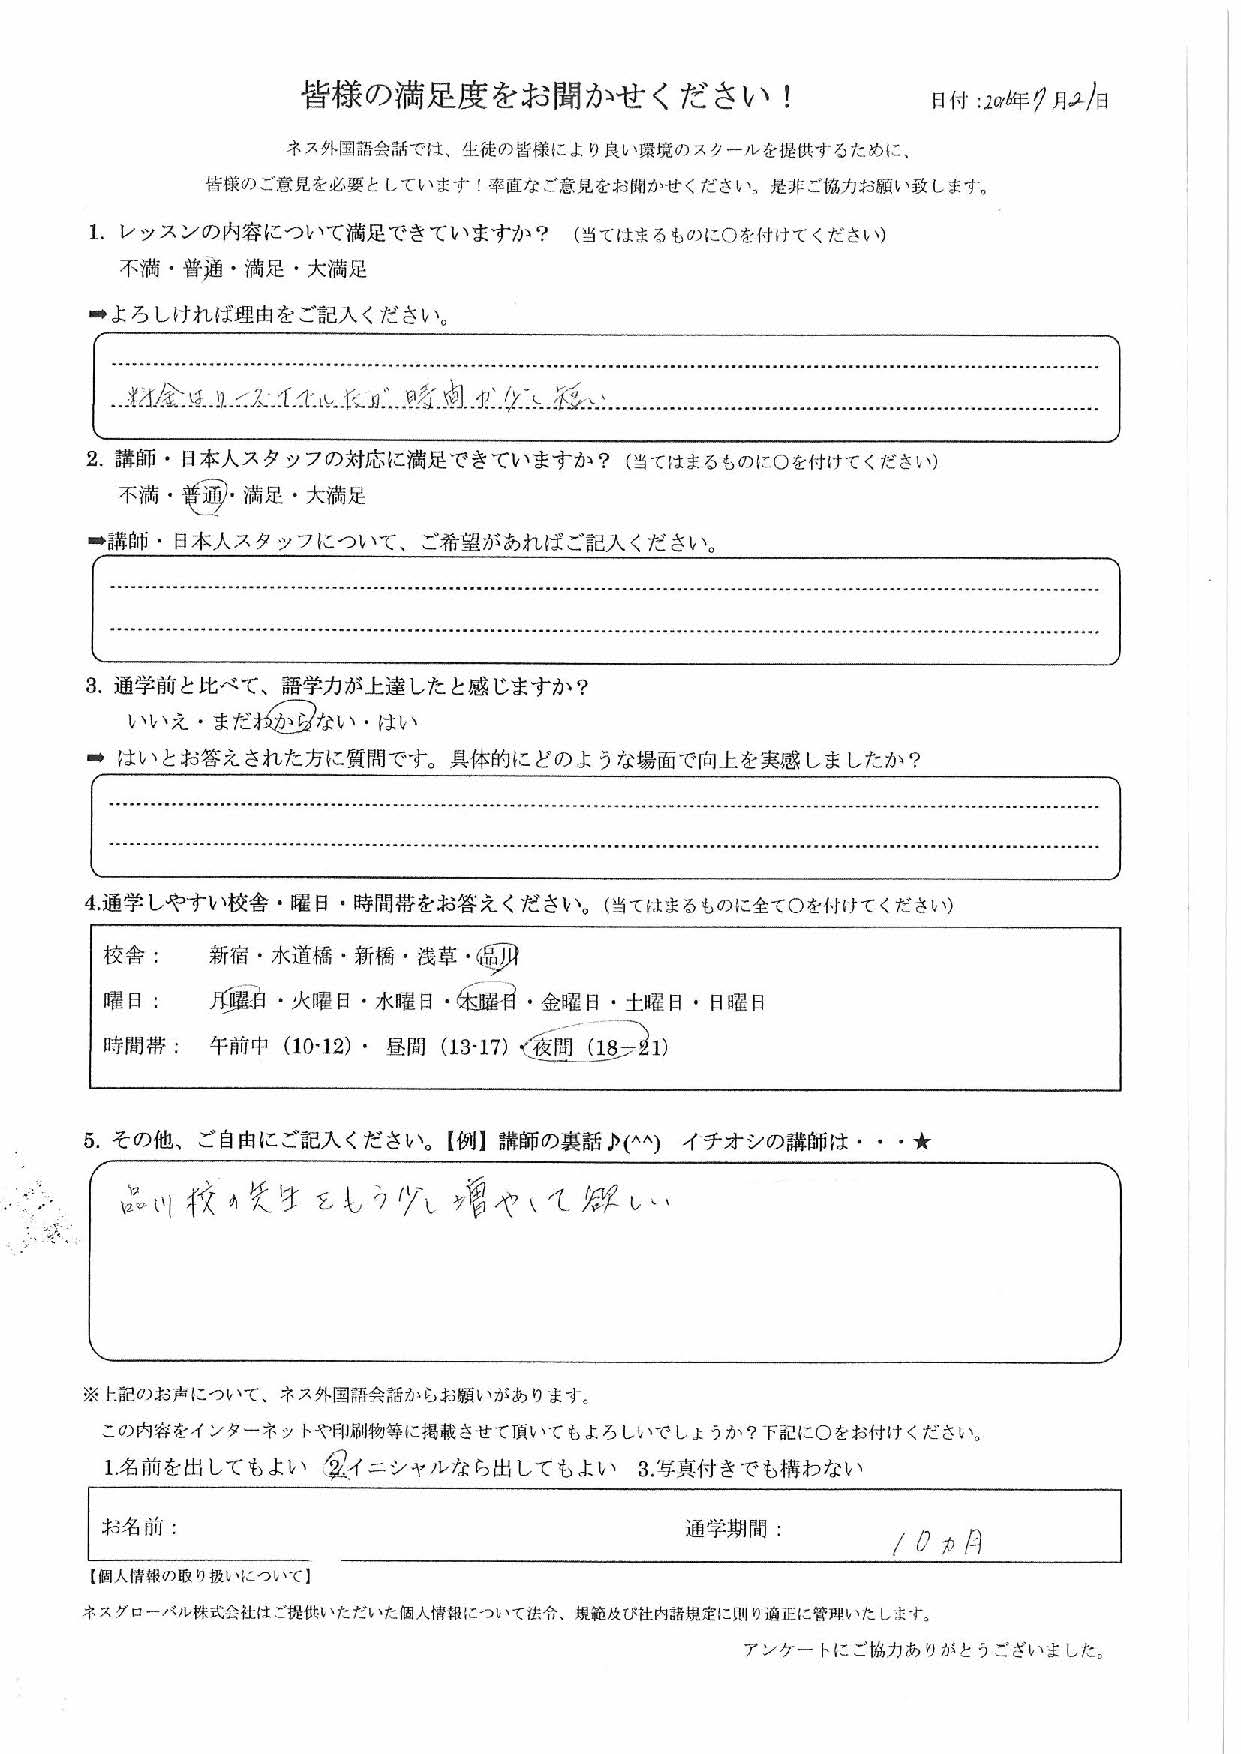 皆様の満足度をお聞かせください！
日付：2016年7月21日
ネス外国語会話では、生徒の皆様により良い環境のスクールを提供するために、
皆様のご意見を必要としています！率直なご意見をお聞かせください。是非ご協力お願い致します。
1. レッスンの内容について満足できていますか？ （当てはまるものに〇を付けてください）
不満・普通・満足・大満足
➡よろしければ理由をご記入ください。
料金はリーズナブルだが 時間が少し短い
2. 講師・日本人スタッフの対応に満足できていますか？（当てはまるものに〇を付けてください）
不満・普通・満足・大満足
➡講師・日本人スタッフについて、ご希望があればご記入ください。
3. 通学前と比べて、語学力が上達したと感じますか？
いいえ・まだわからない・はい
➡ はいとお答えされた方に質問です。具体的にどのような場面で向上を実感しましたか？
4.通学しやすい校舎・曜日・時間帯をお答えください。（当てはまるものに全て〇を付けてください）
校舎： 新宿・水道橋・新橋・浅草・品川
曜日： 月曜日・火曜日・水曜日・木曜日・金曜日・土曜日・日曜日
時間帯： 午前中（10-12）・ 昼間（13-17）・夜間（18－21）
5. その他、ご自由にご記入ください。【例】講師の裏話♪(^^) イチオシの講師は・・・★
品川校の先生をもう少し増やして欲しい
※上記のお声について、ネス外国語会話からお願いがあります。
この内容をインターネットや印刷物等に掲載させて頂いてもよろしいでしょうか？下記に〇をお付けください。
1.名前を出してもよい 2.イニシャルなら出してもよい 3.写真付きでも構わない
お名前： 通学期間： 10ヵ月
【個人情報の取り扱いについて】
ネスグローバル株式会社はご提供いただいた個人情報について法令、規範及び社内諸規定に則り適正に管理いたします。
アンケートにご協力ありがとうございました。